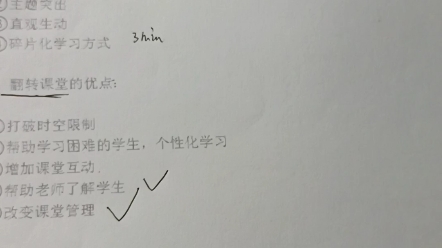 主题突出
直观生动
碎片化学习方式 3min
翻转课堂的优点:
打破时空限制
帮助学习困难的学生，个性化学习
增加课堂互动.
帮助老师了解学生
改变课堂管理